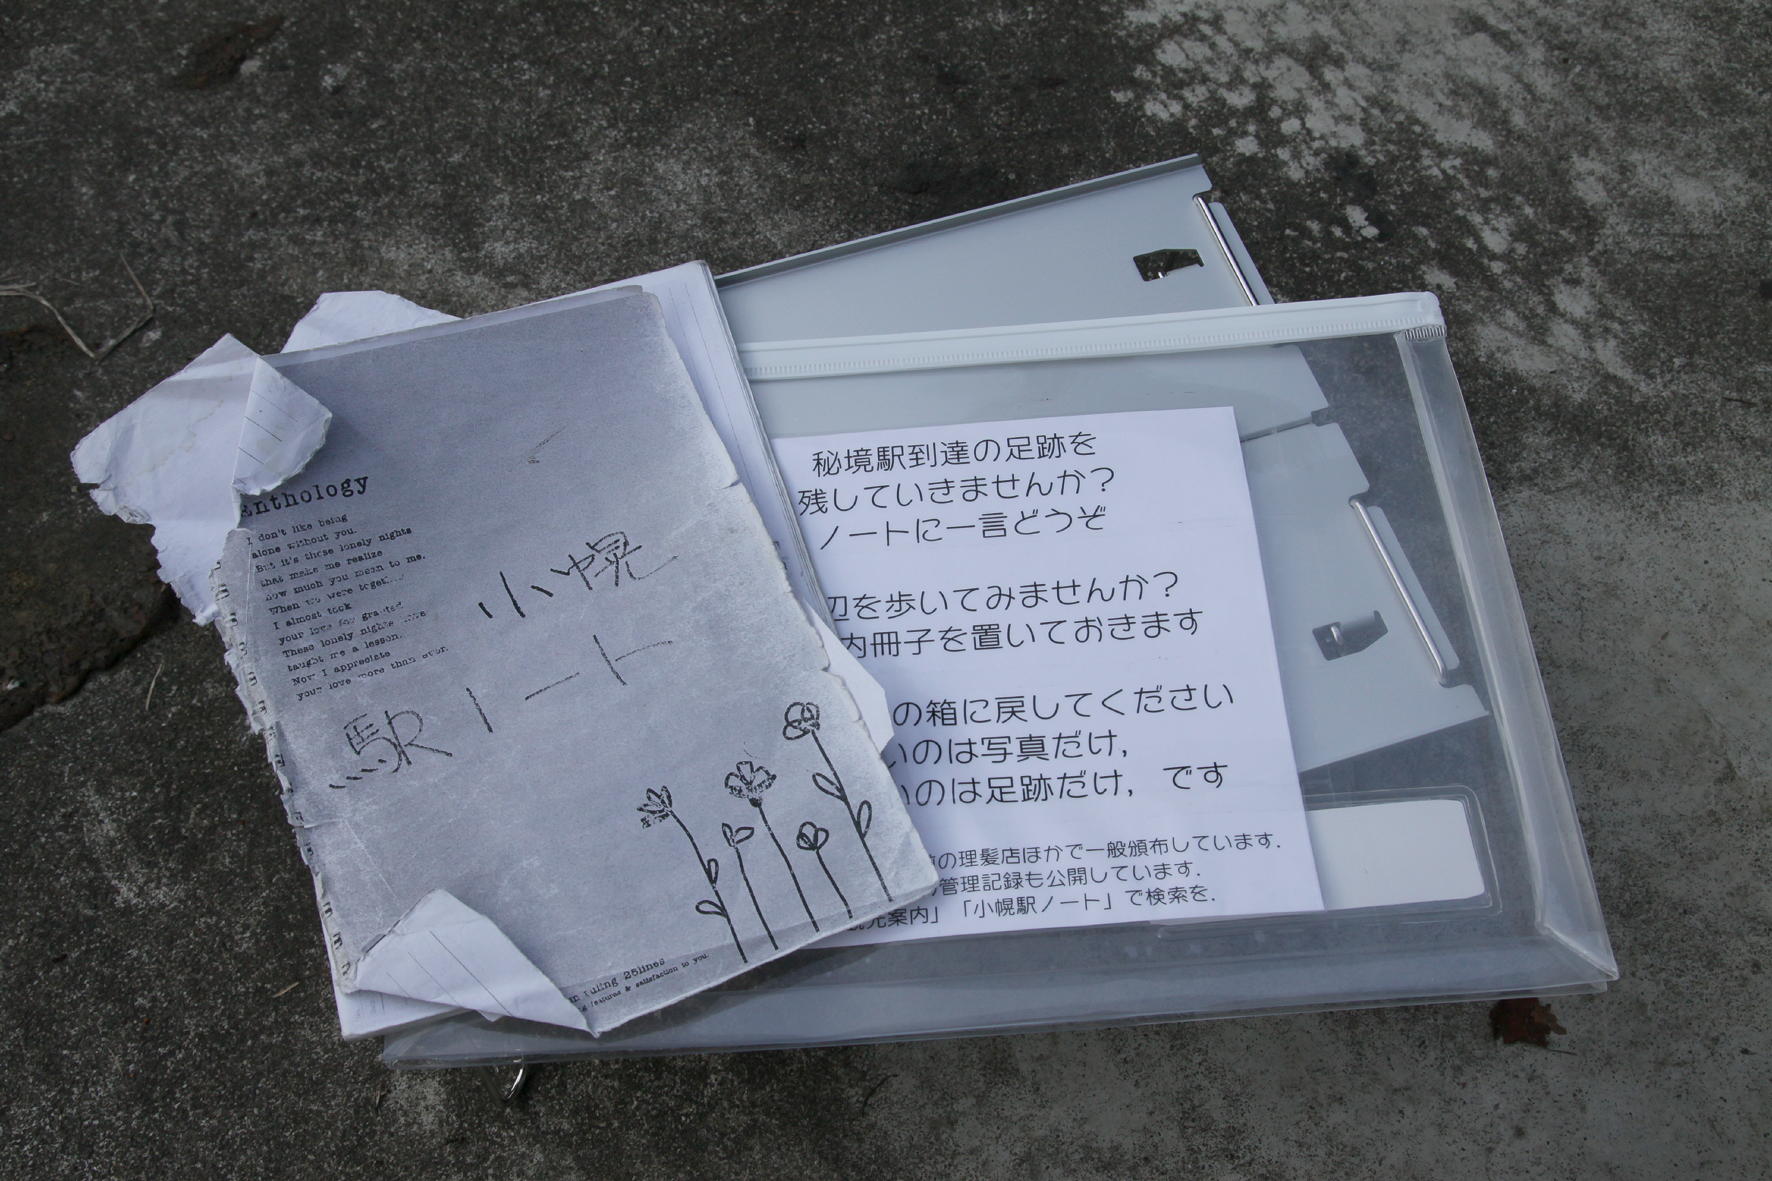 Enthology
I don't like being
alone without you.
But it's those lonely nights
that make me realize
how much you mean to me.
When we were together
I almost took
your love for granted.
These lonely nights have
taught me a lesson.
Now I appreciate
your love more than ever.
小幌
駅ノート
ruling 25lines
features & satisfaction to you.
秘境駅到達の足跡を
残していきませんか?
ノートに一言どうぞ
辺を歩いてみませんか?
内冊子を置いておきます
の箱に戻してください
いのは写真だけ,
いのは足跡だけ, です
の理髪店ほかで一般頒布しています.
管理記録も公開しています.
観光案内」「小幌駅ノート」で検索を.